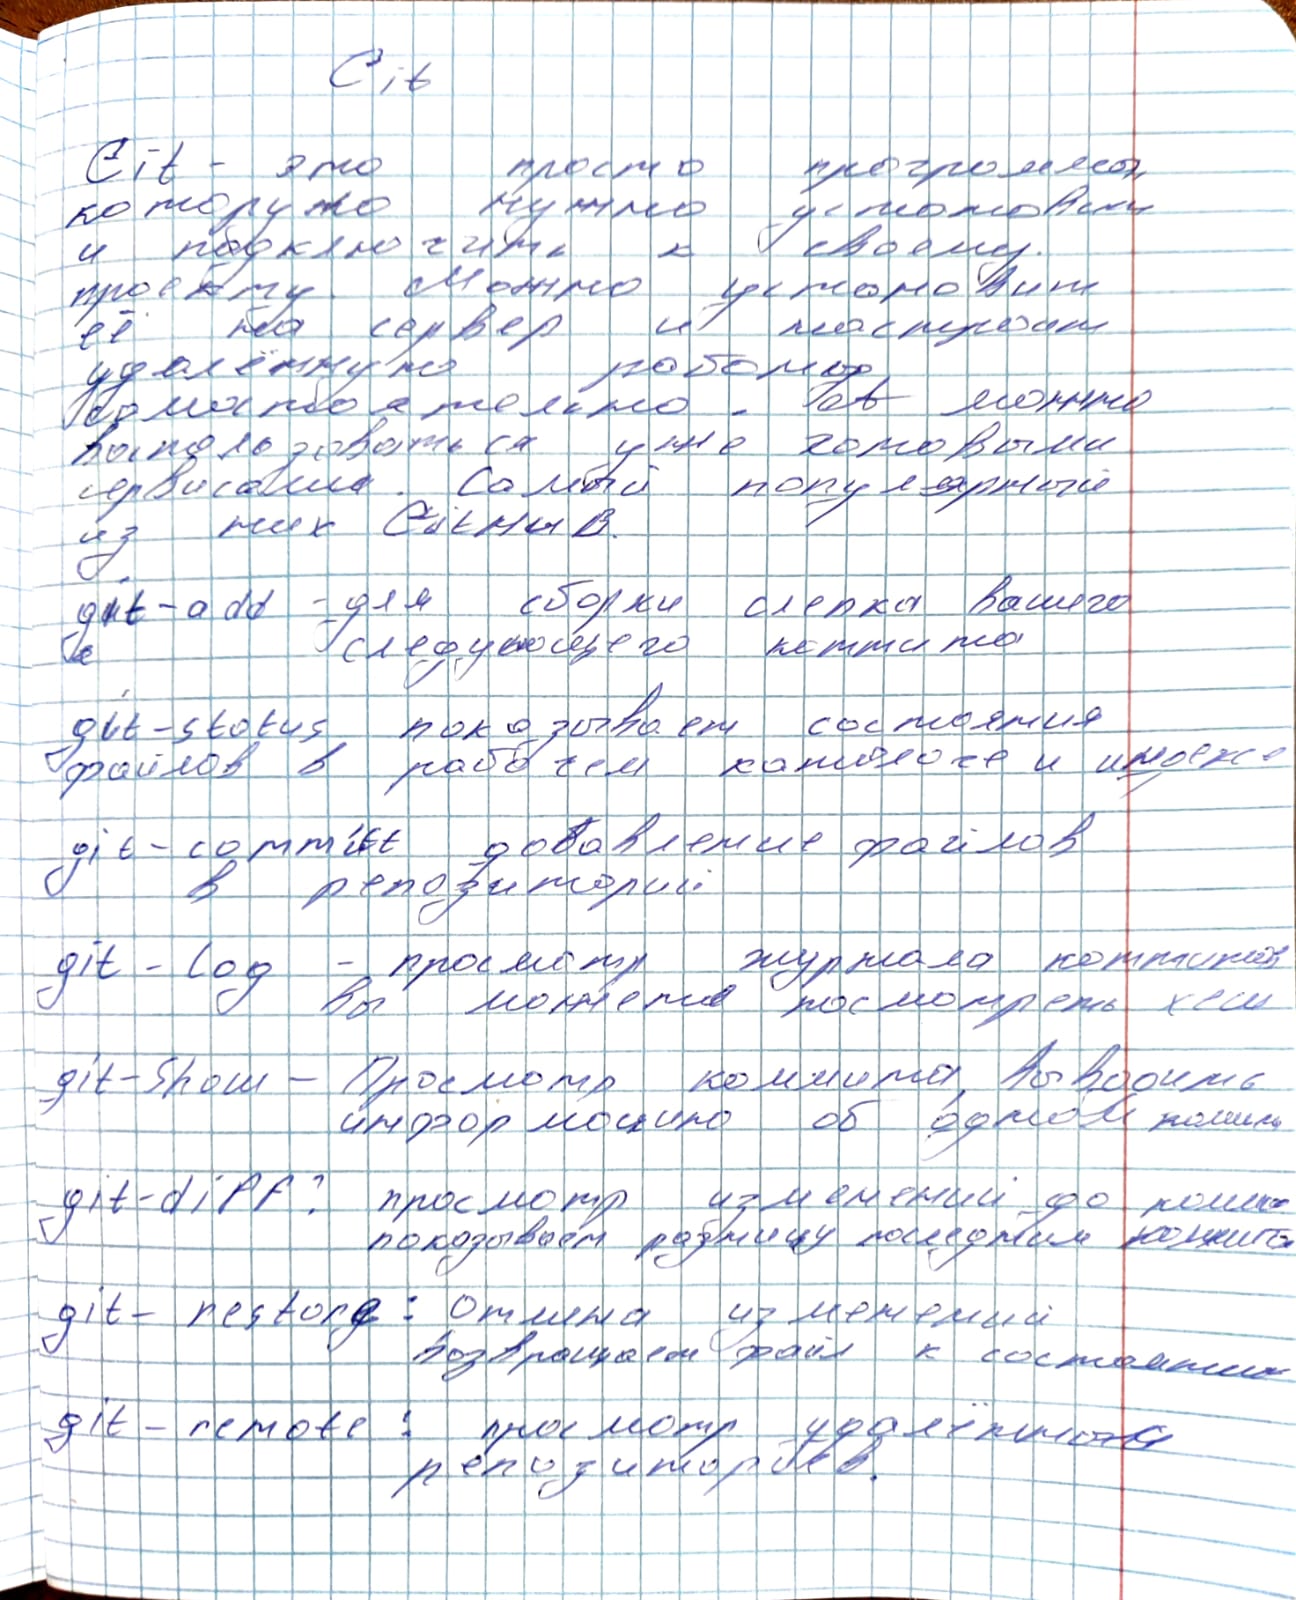 Git
Git - это просто программа,
которую нужно установить
и подключить к своему
проекту. Можно установит
её на сервер и настроит
удалённую работы
самостоятельно. можно
воспользоваться уже готовыми
сервисами. Самый популярный
из них GitHuB.
git-add - для сборки слепка вашего
следующего коммита
git-status показывает состояния
файлов в рабочем каталоге и индексе
git-commit добавление файлов
в репозиторий
git - log - просмотр журнала коммитов
вы можете посмотреть хеш
git-show - Просмотр коммита, выводить
информацию об одном
git-diff: просмотр изменений до
показывает разницу последним коммита
git- restore: Отмена изменений
возвращает файл к состоянию
git- remote: просмотр удалённых
репозиториев.